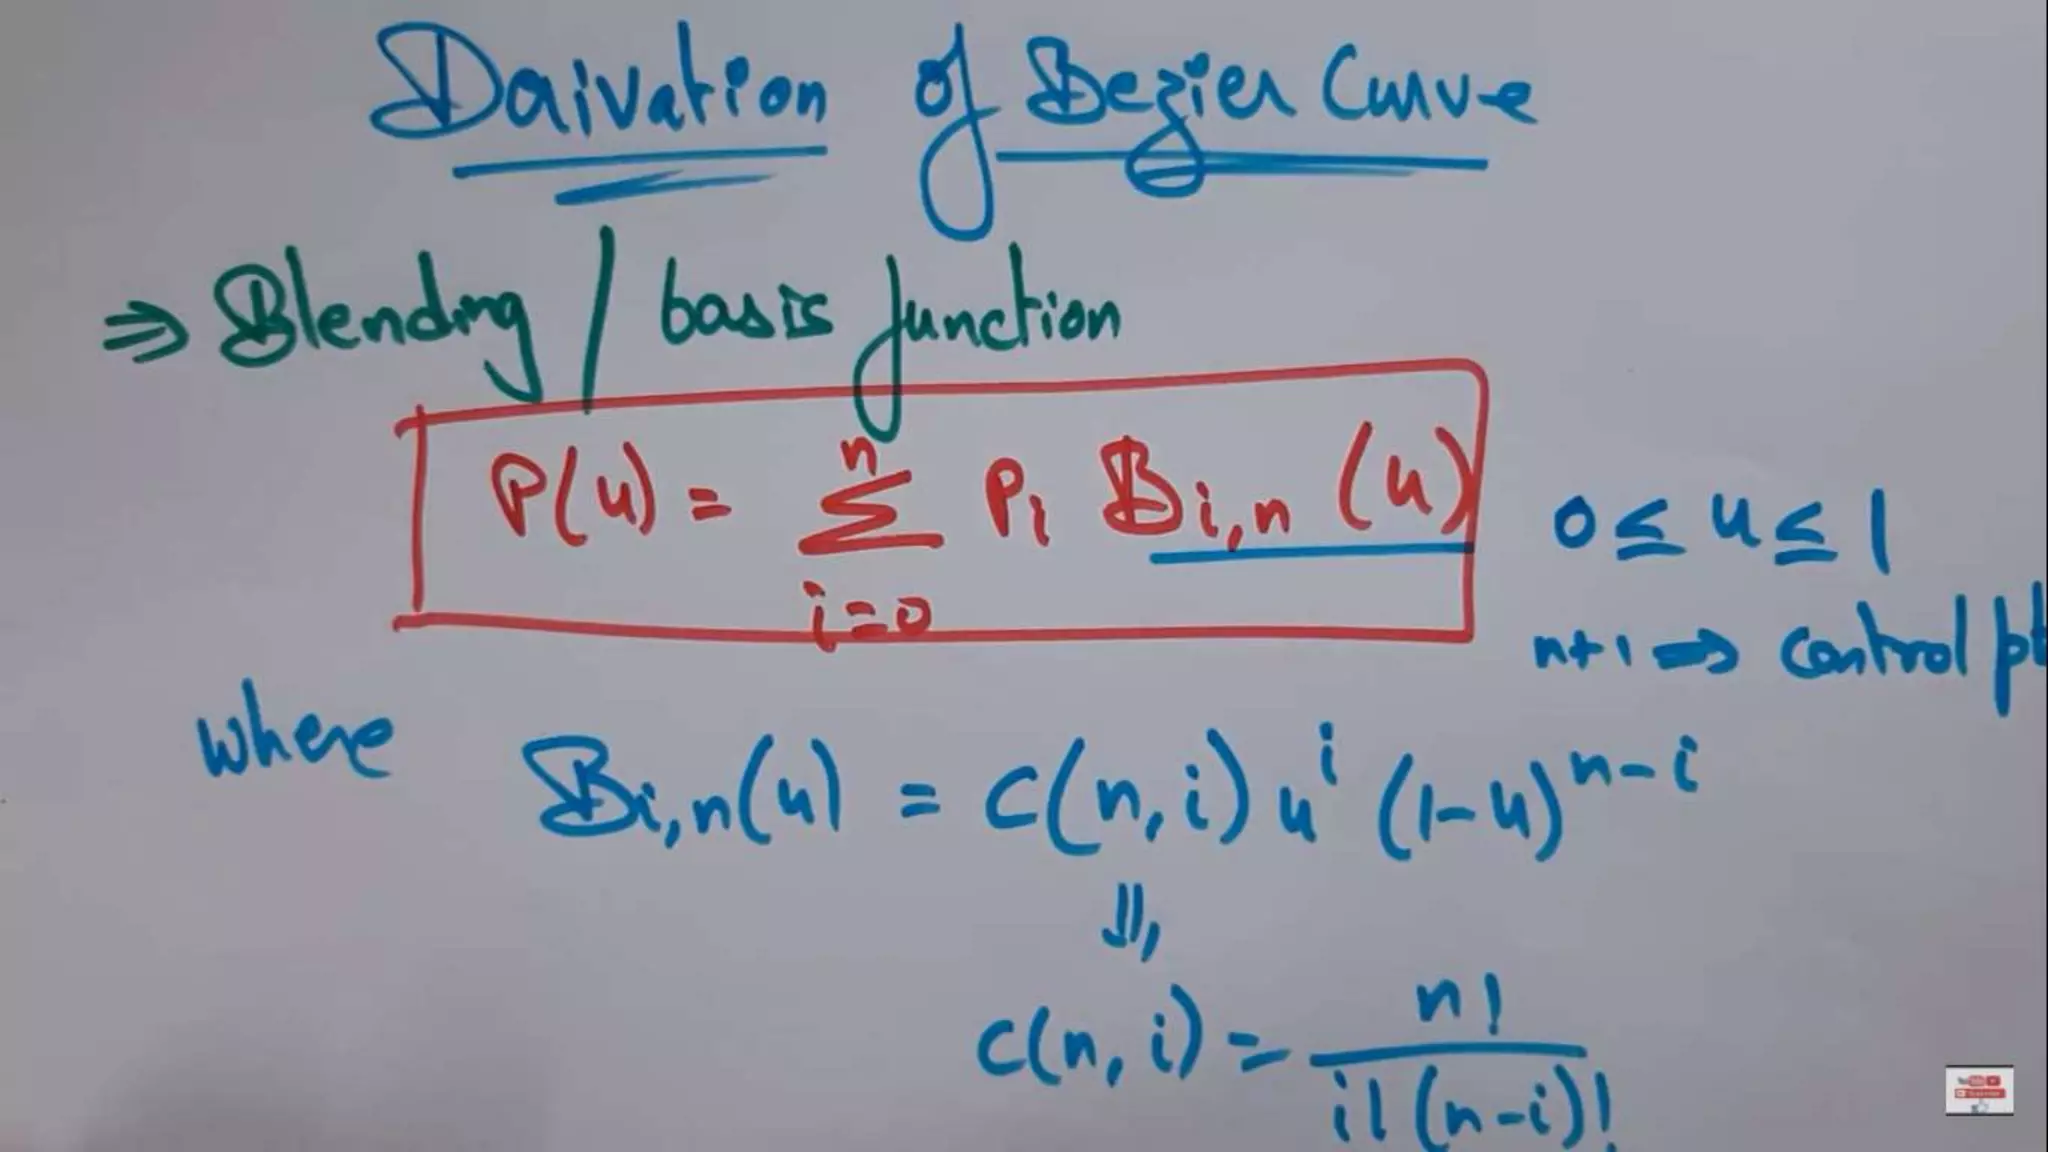 Derivation of Bezier Curve
⇒ Blending / basis function
P(u) = Σ_{i=0}^{n} Pi Bi,n (u)
0 ≤ u ≤ 1
n+1 ⇒ Control pt
where Bi,n(u) = C(n,i) u^i (1-u)^{n-i}
⇓
C(n,i) = n! / i! (n-i)!